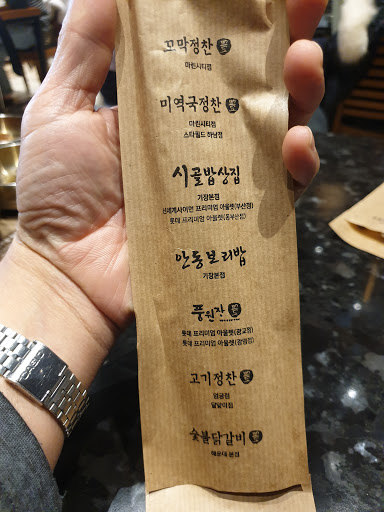 꼬막정찬
마린시티점
미역국정찬
마린시티점
스타필드 하남점
시골밥상집
기장본점
신세계사이먼 프리미엄 아울렛(부산점)
롯데 프리미엄 아울렛(동부산점)
안동보리밥
기장본점
풍원장
롯데 프리미엄 아울렛(광교점)
롯데 프리미엄 아울렛(광명점)
고기정찬
엄궁점
달맞이점
숯불닭갈비
해운대 본점